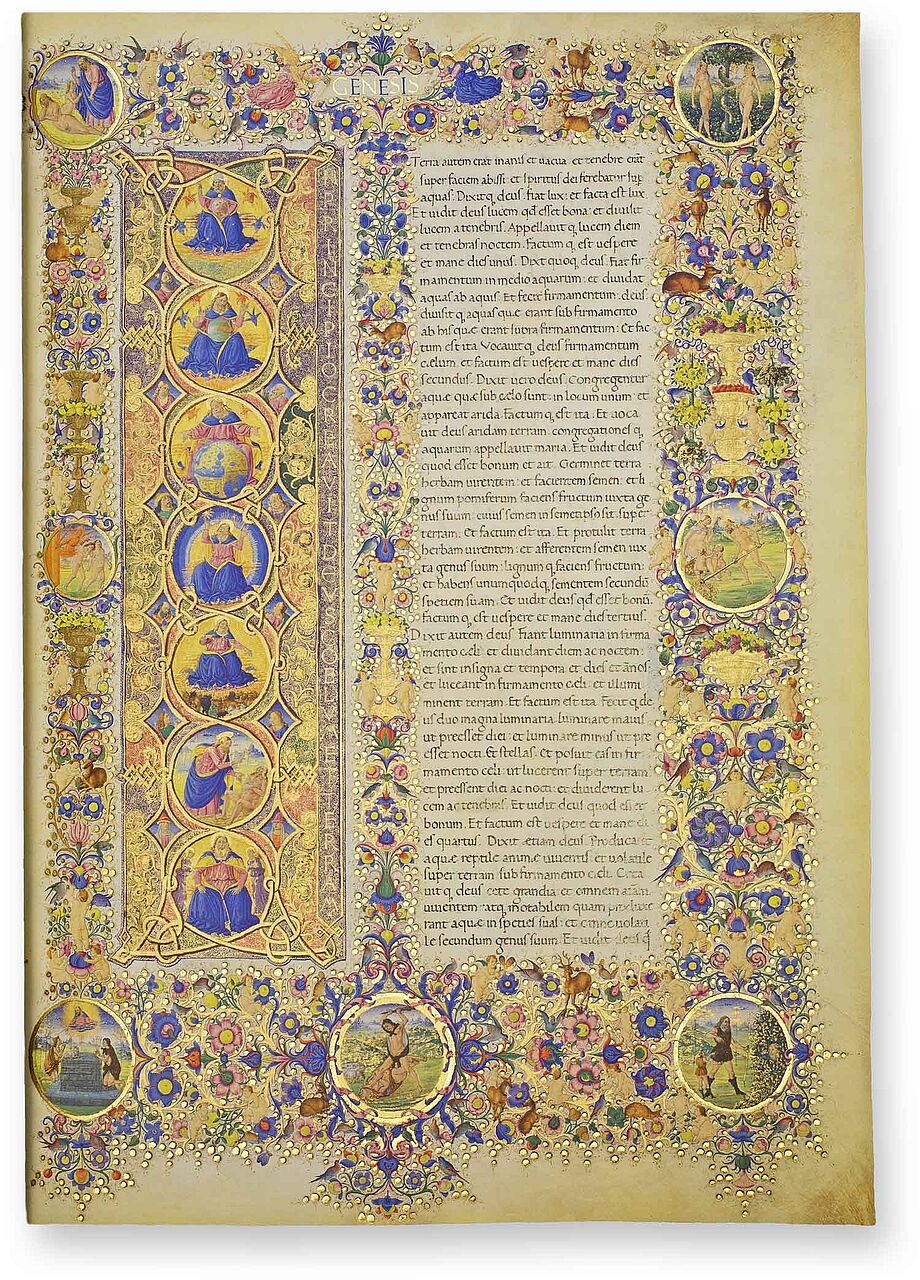 GENESIS
IN PRINCIPIO CREAVIT DEVS
Terra autem erat inanis et vacua et tenebre erāt
super faciem abissi et spiritus dei ferebatur sup
aquas. Dixitq deus fiat lux: et facta est lux
Et vidit deus lucem qđ esset bona: et divisit
lucem a tenebris. Appellavit q lucem diem
et tenebras noctem. Factum q est vespere
et mane dies unus. Dixit quoq deus. Fiat fir
mamentum in medio aquarum: et dividat
aquas ab aquis. Et fecit firmamentum: deus.
divisit q aquas que erant sub firmamento
ab his que erant supra firmamentum: Et fac
tum est ita. Vocavit q deus firmamentum
cælum: et factum est vespere et mane dies
secundus. Dixit vero deus. Congregentur
aque que sub celo sunt: in locum unum: et
appareat arida. Factum q est ita. Et voca
vit deus aridam terram: congregationes q
aquarum appellavit maria. Et vidit deus
quod esset bonum et ait. Germinet terra
herbam virentem: et facientem semen: et li
gnum pomiferum faciens fructum iuxta ge
nus suum: cuius semen in semetipso sit super
terram. Et factum est ita. Et protulit terra
herbam virentem: et afferentem semen iux
ta genus suum: lignum q faciens fructum:
et habens unumquodq sementem secundū
speciem suam. Et vidit deus qđ esset bonū.
Factum q est vespere et mane dies tertius.
Dixit autem deus. Fiant luminaria in firma
mento celi: et dividant diem ac noctem:
et sint in signa et tempora et dies et ānos:
et luceant in firmamento celi: et illumi
minent terram. Et factum est ita. Fecit q de
us duo magna luminaria. luminare maius
ut preesset diei: et luminare minus ut pre
esset nocti. Et stellas. Et posuit eas in fir
mamento celi: ut lucerent super terram
et preessent diei ac nocti: et dividerent lu
cem ac tenebras. Et vidit deus quod esset
bonum. Et factum est vespere et mane di
es quartus. Dixit ætiam deus. Producant
aque reptile anime viventis: et volatile
super terram sub firmamento celi. Crea
vit q deus cete grandia: et omnem animā
viventem: atq motabilem quam produxe
rant aque in species suas: et omne volati
le secundum genus suum. Et vidit deus q